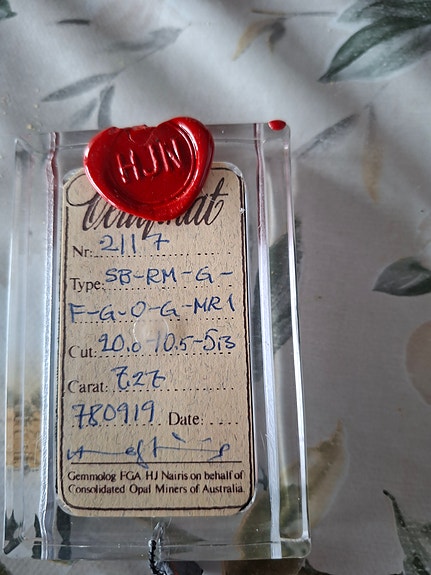 HJN
Certifikat
Nr: 2117
Type: SB-RM-G-
F-G-O-G-MR1
Cut: 20.0-10.5-5.3
Carat: 7.27
780919 Date:
Gemmolog FGA HJ Nairis on behalf of
Consolidated Opal Miners of Australia.